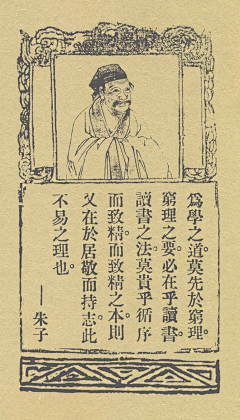 為學之道莫先於窮理。
窮理之要必在乎讀書。
讀書之法莫貴乎循序
而致精。而致精之本則
又在於居敬而持志。此
不易之理也。
——朱子